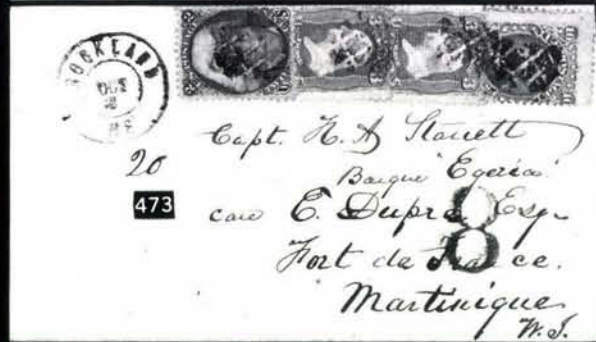 ROCKLAND
OCT
2
ME
Capt. H. A Starrett
20
Barque "Egeria"
473
care E. Dupré Esq
8
Fort de France.
Martinique
W. I.